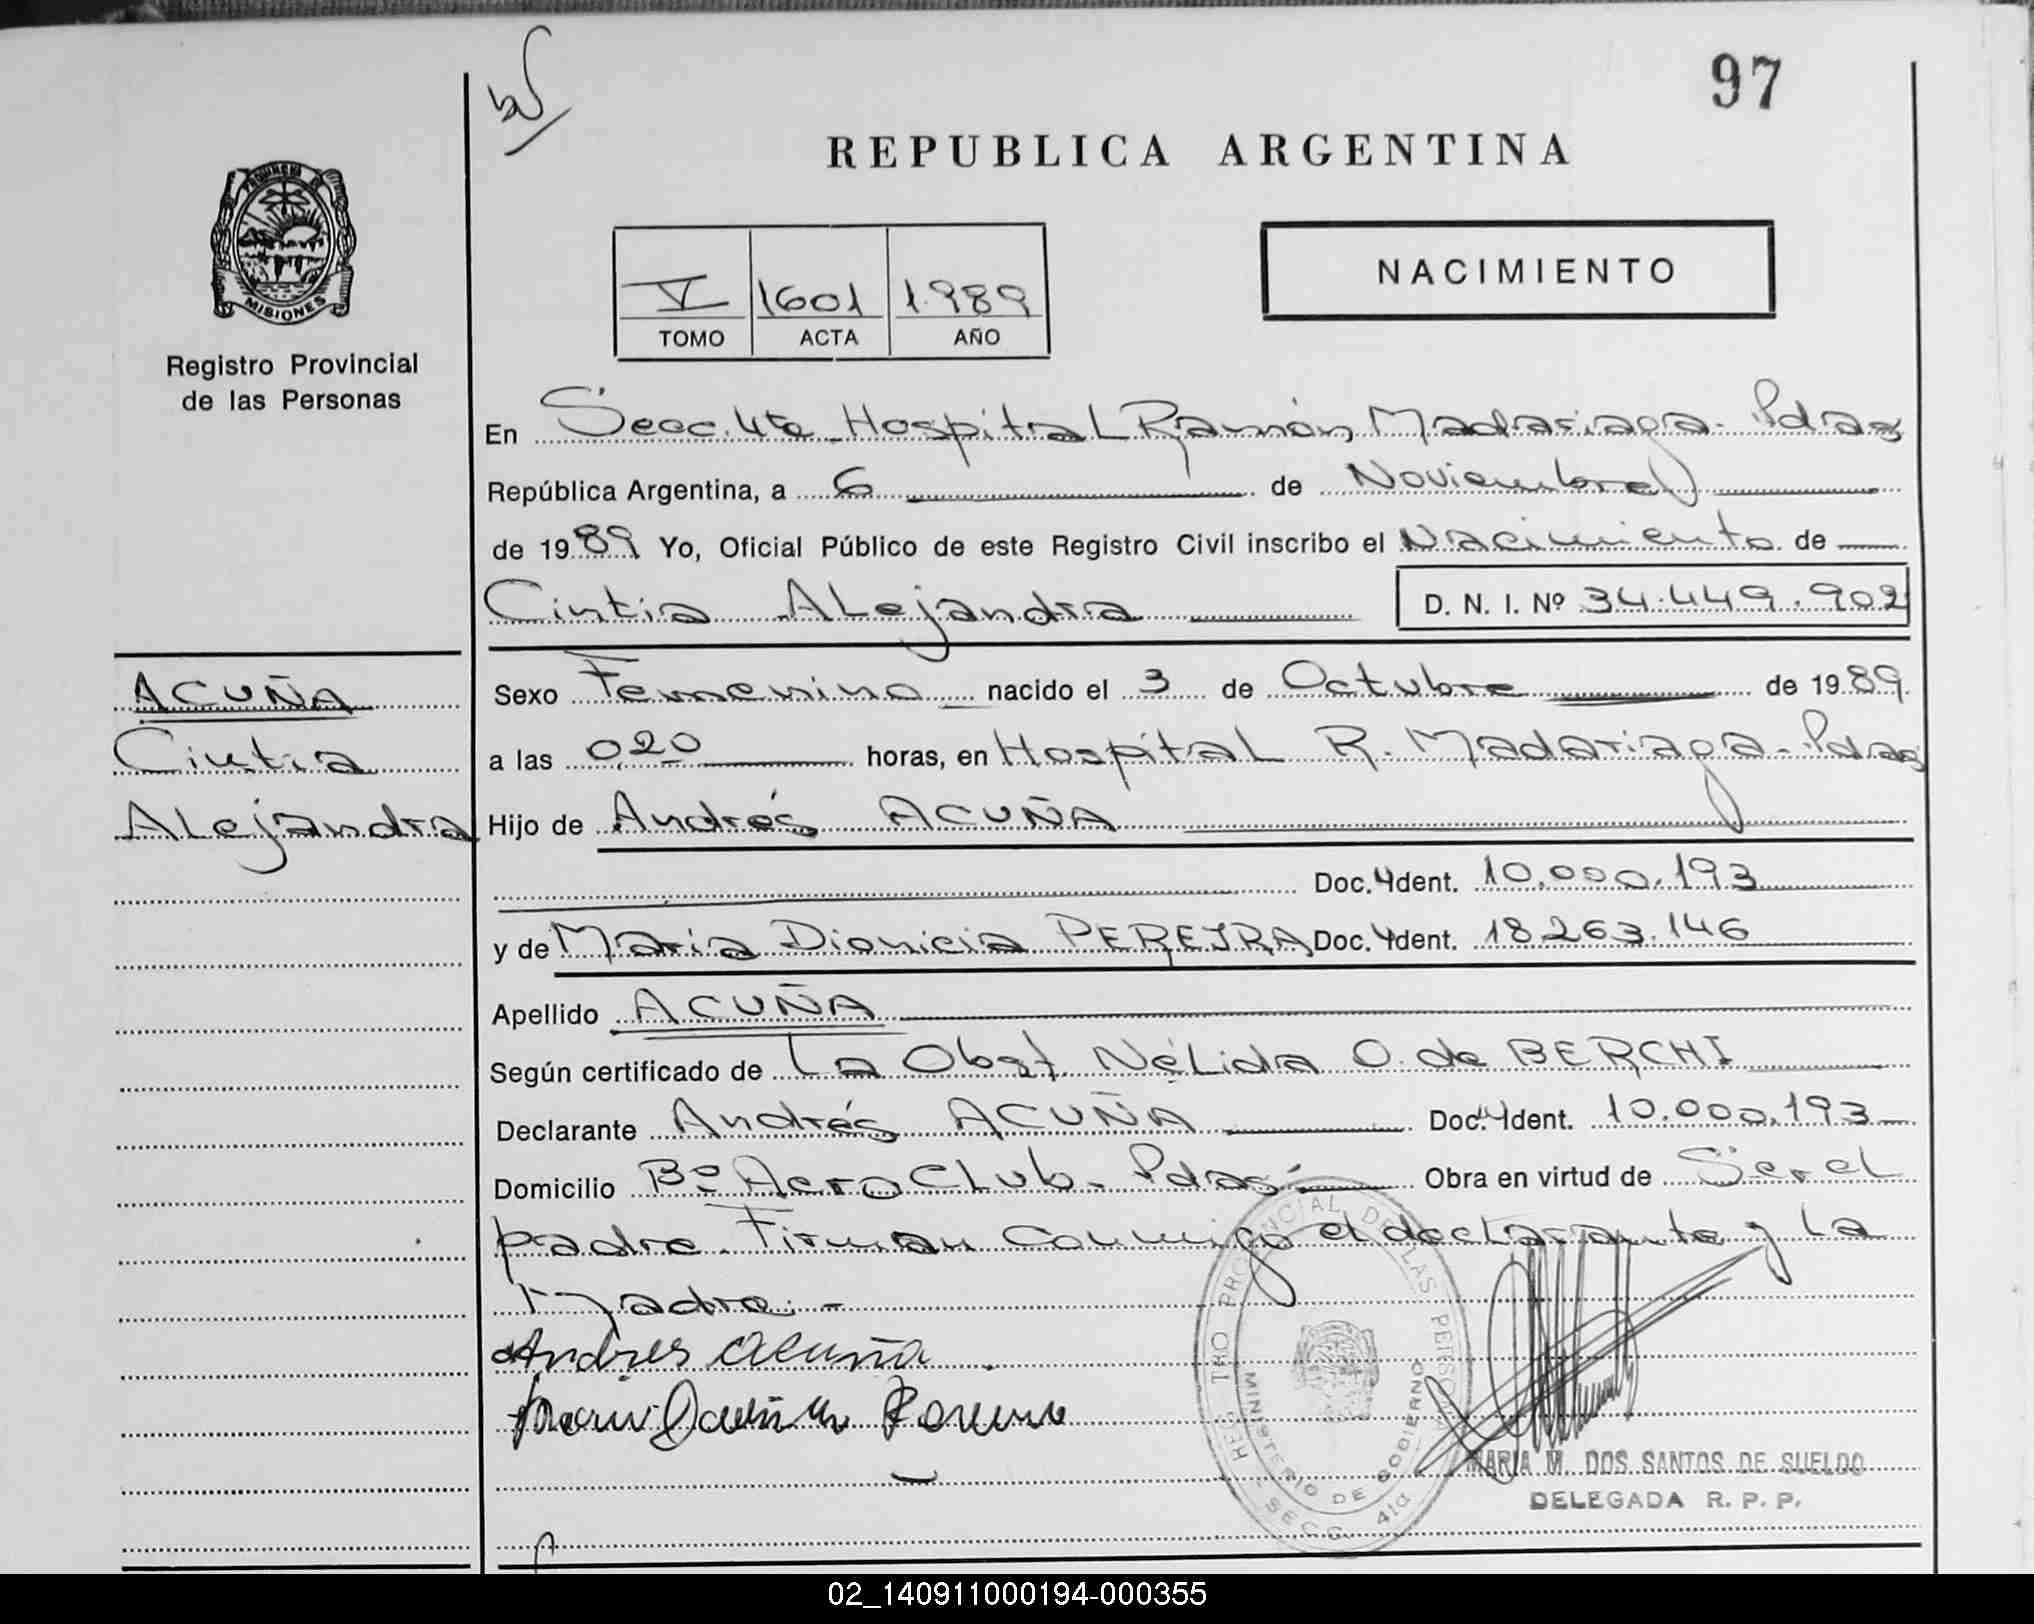 97
REPUBLICA ARGENTINA
PROVINCIA DE
MISIONES
Registro Provincial
de las Personas
V 1601 1.989
TOMO ACTA AÑO
NACIMIENTO
En Secc. 4ta Hospital Ramón Madariaga - Pdas
República Argentina, a 6 de Noviembre
de 1989 Yo, Oficial Público de este Registro Civil inscribo el Nacimiento de
Cintia Alejandra D. N. I. Nº 34.449.902
ACUÑA
Cintia
Alejandra
Sexo Femenino nacido el 3 de Octubre de 1989
a las 0,20 horas, en Hospital R. Madariaga - Pdas
Hijo de Andrés ACUÑA
Doc. Ident. 10.000.193
y de María Dionicia PEREJRA Doc. Ident. 18.263.146
Apellido ACUÑA
Según certificado de La Obst. Nélida O. de BERCHI
Declarante Andrés ACUÑA Doc. Ident. 10.000.193
Domicilio Bº Aero Club - Pdas Obra en virtud de Ser el
padre. Firman conmigo el declarante y la
Madre. -
Andres acuña
REGISTRO PROVINCIAL DE LAS PERSONAS
MINISTERIO DE GOBIERNO
SECC. 4ta
MARIA M. DOS SANTOS DE SUELDO
DELEGADA R. P. P.
02_140911000194-000355